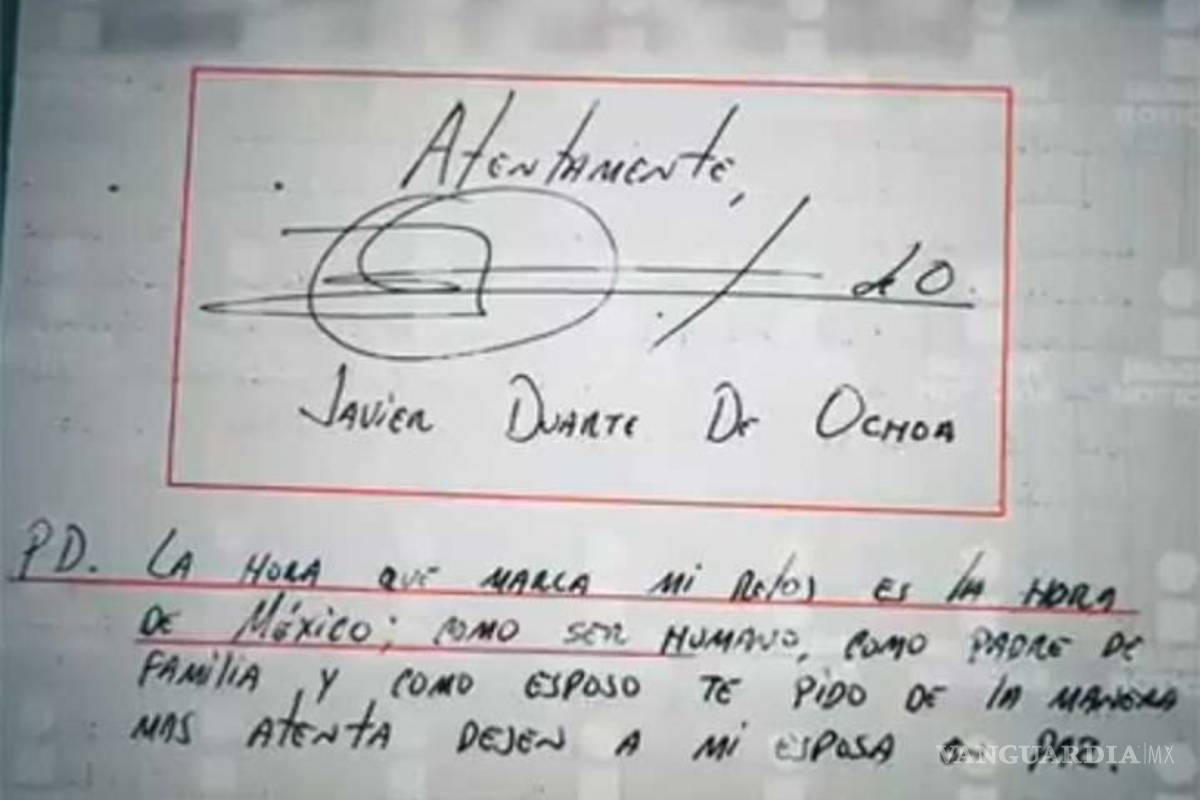 Atentamente,
d O.
Javier Duarte De Ochoa
PD. La hora que marca mi reloj es la hora
de México; como ser humano, como padre de
familia, y como esposo te pido de la manera
mas atenta dejen a mi esposa en paz.
VANGUARDIA|MX